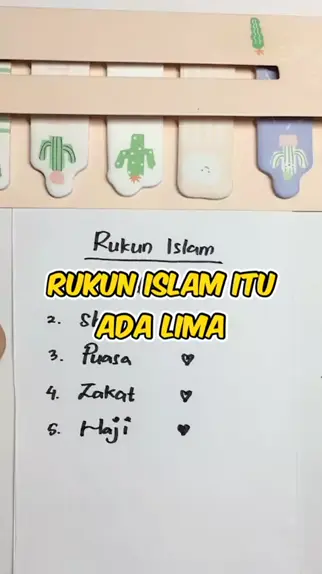 Rukun Islam
RUKUN ISLAM ITU
ADA LIMA
2. Sh
3. Puasa
4. Zakat
5. Haji